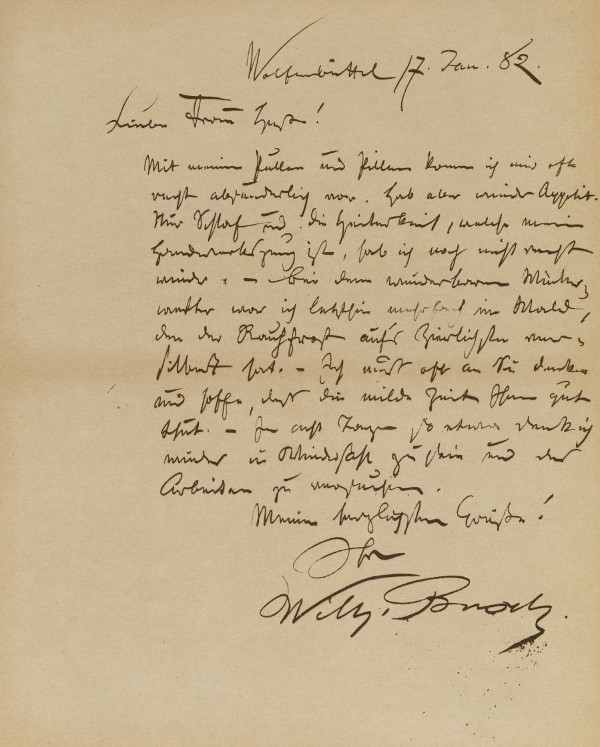 Wolfenbüttel 17. Jan. 82.
Liebe Frau Heß!
Mit meinen Pullen und Pillen komm ich mir oft
recht absunderlich vor. Hab aber wieder Appetit.
Nur Schlaf und die Heiterkeit, welche mein
Handwerkszeug ist, hab ich noch nicht recht
wieder. – Bei dem wunderbaren Winter-
wetter war ich letzthin mehrfach im Wald,
den der Rauhfrost auf's Zierlichste ver-
silbert hat. – Ich muß oft an Sie denken
und hoffe, daß die milde Zeit Ihnen gut
thut. – In acht Tagen so etwa denk ich
wieder in Wiedensahl zu sein und das
Arbeiten zu versuchen.
Meine herzlichsten Grüße!
Ihr
Wilh. Busch.